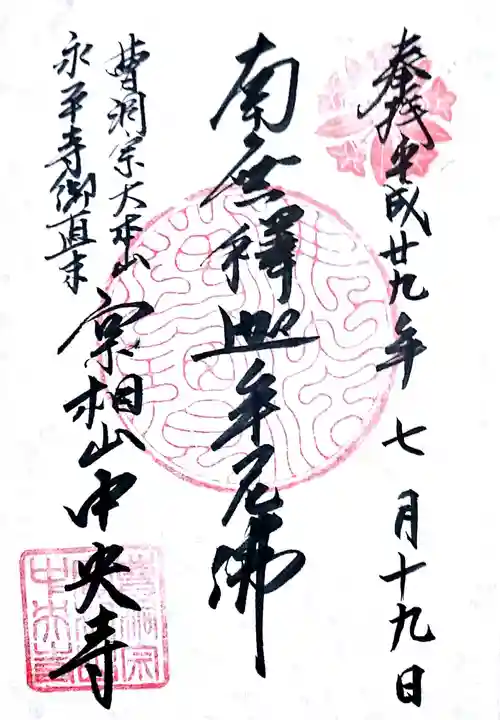 奉拝 平成廿九年 七月十九日
南無釋迦牟尼佛
曹洞宗大本山
永平寺御直末
宗相山中央寺
曹洞宗
中央寺